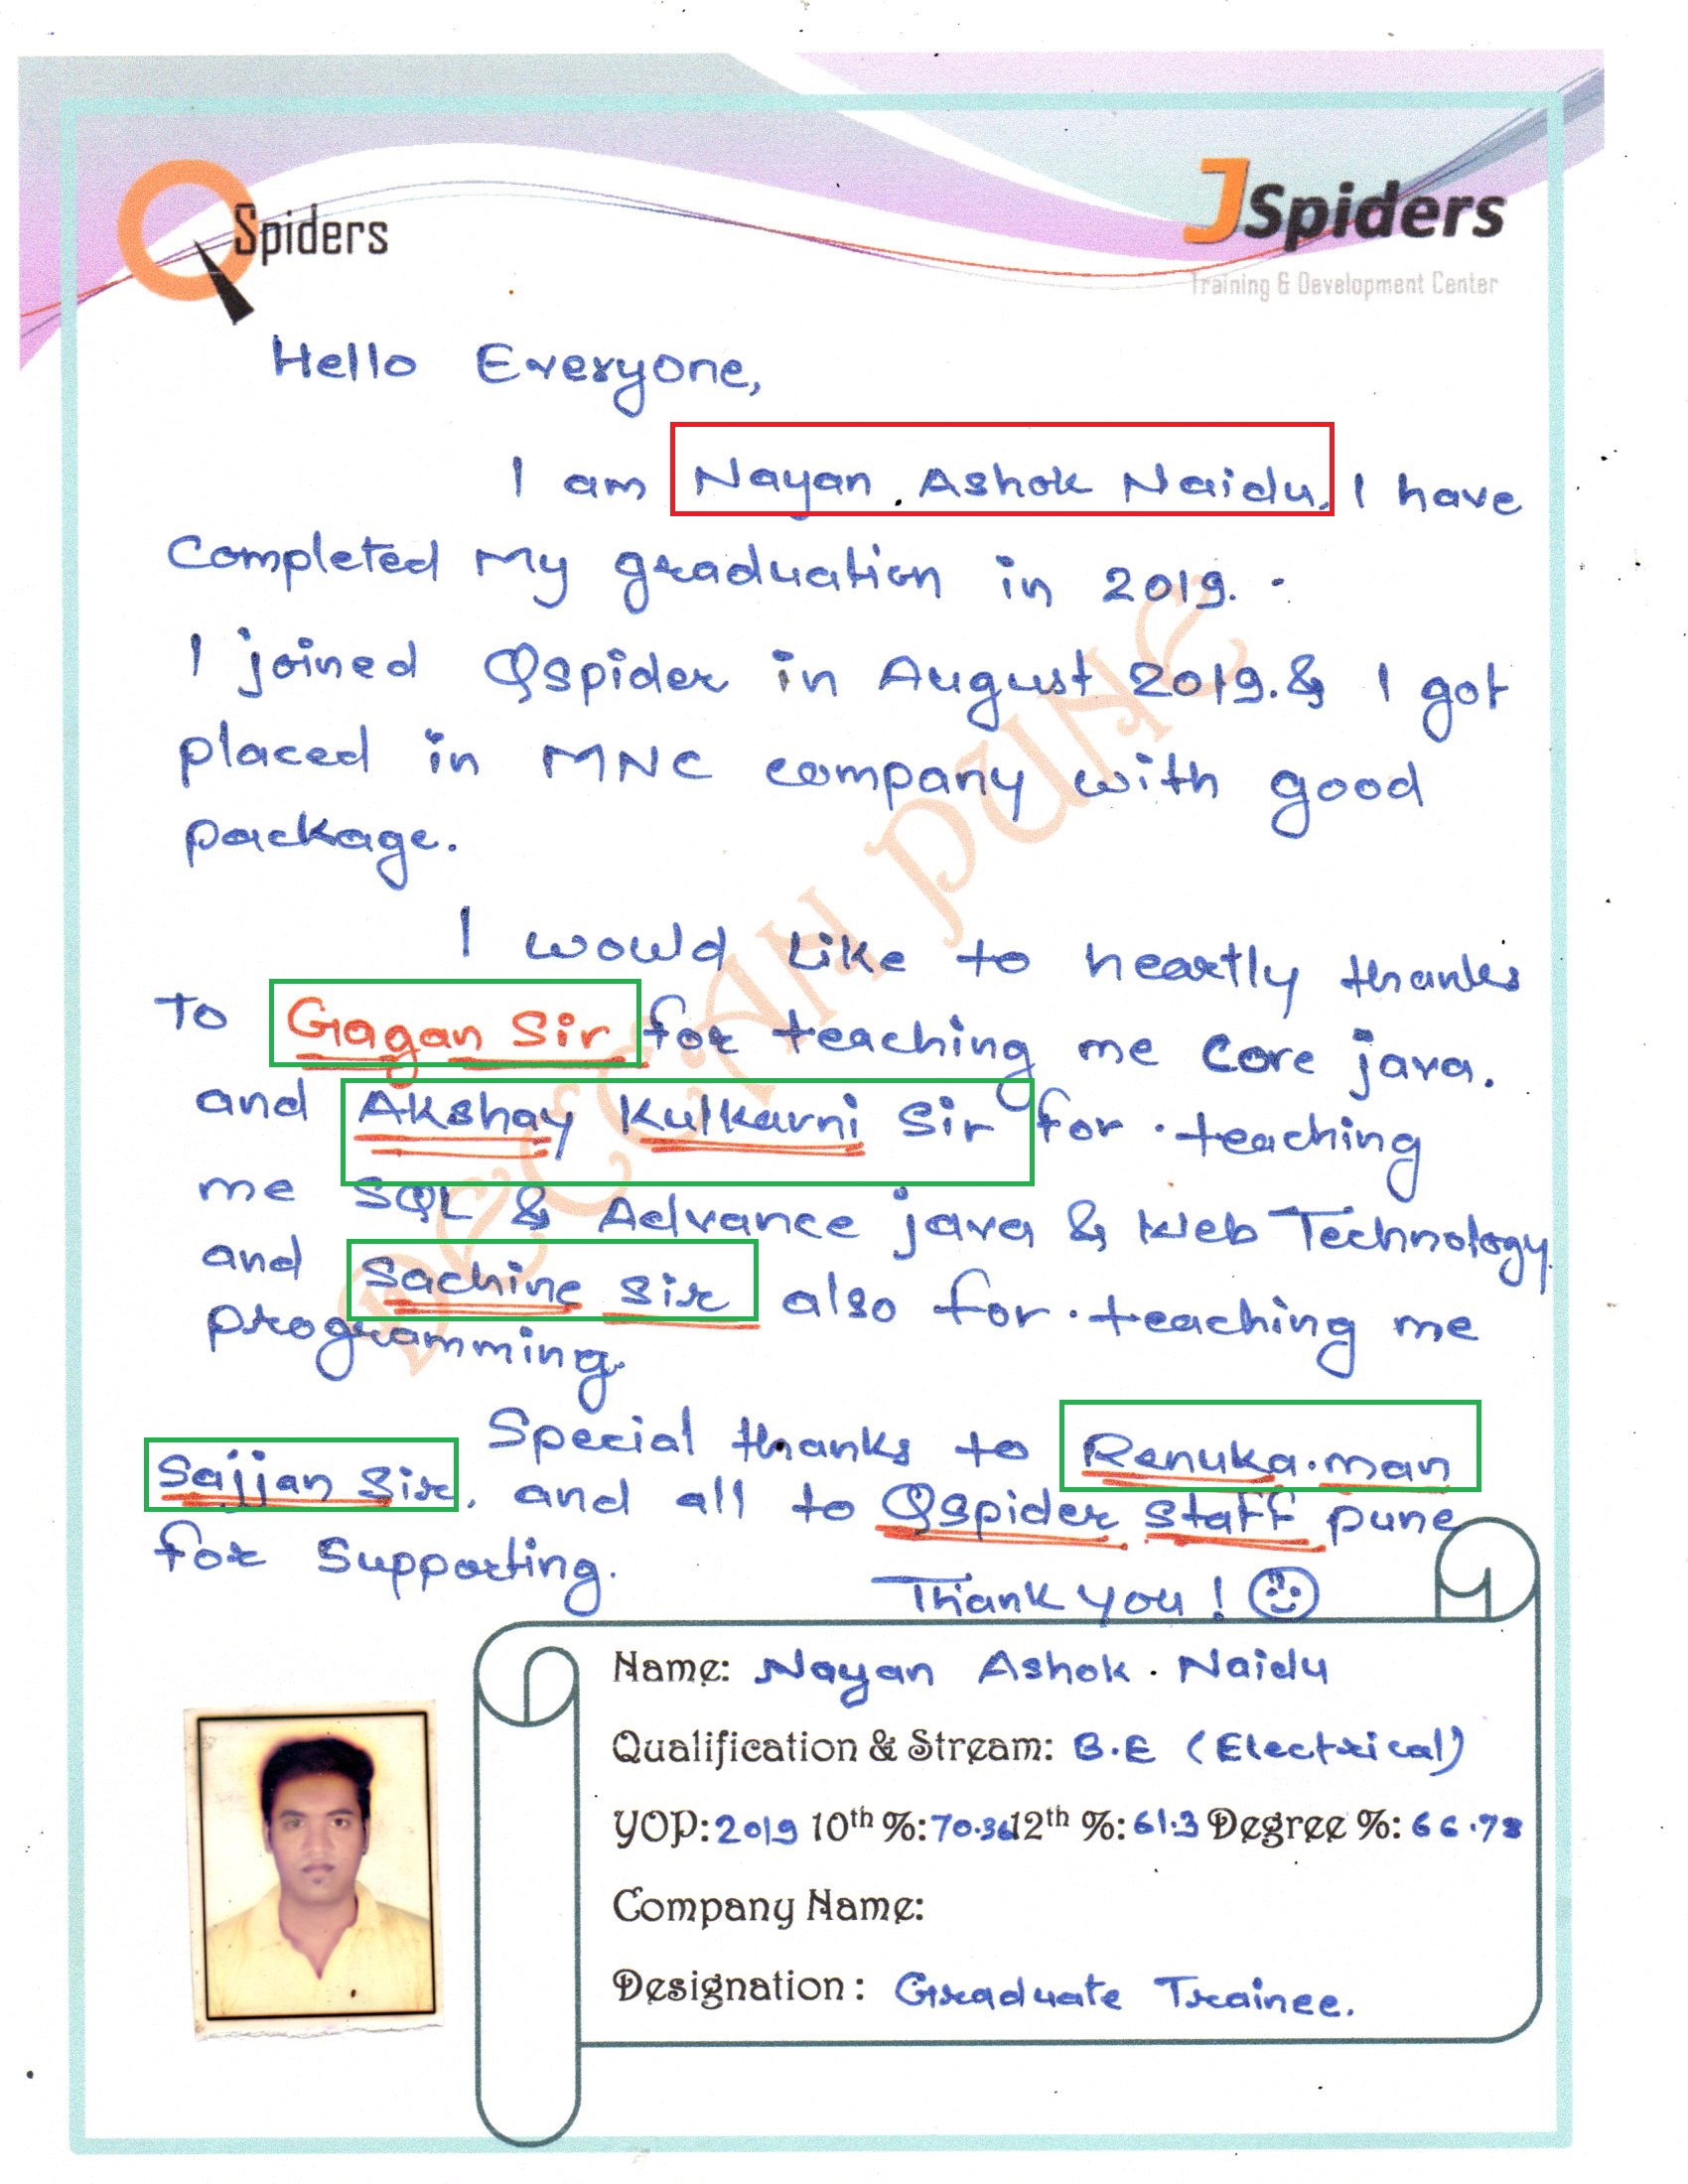 QSpiders
JSpiders
Training & Development Center
Hello Everyone,
I am Nayan . Ashok Naidu. I have
Completed My graduation in 2019.
I joined Qspider in August 2019. & I got
placed in MNC company with good
package.
I would like to heartly thanks
To Gagan Sir for teaching me core java.
and Akshay Kulkarni Sir for teaching
me SQL & Advance java & Web Technology
and Sachine sir also for teaching me
programming.
Special thanks to Renuka.mam
Sajjan Sir, and all to Qspider staff pune
for Supporting.
Thank you! ☺
DECCAN PUNE
Name: Nayan Ashok . Naidu
Qualification & Stream: B.E (Electrical)
YOP: 2019 10th %: 70.36 12th %: 61.3 Degree %: 66.78
Company Name:
Designation : Graduate Trainee.